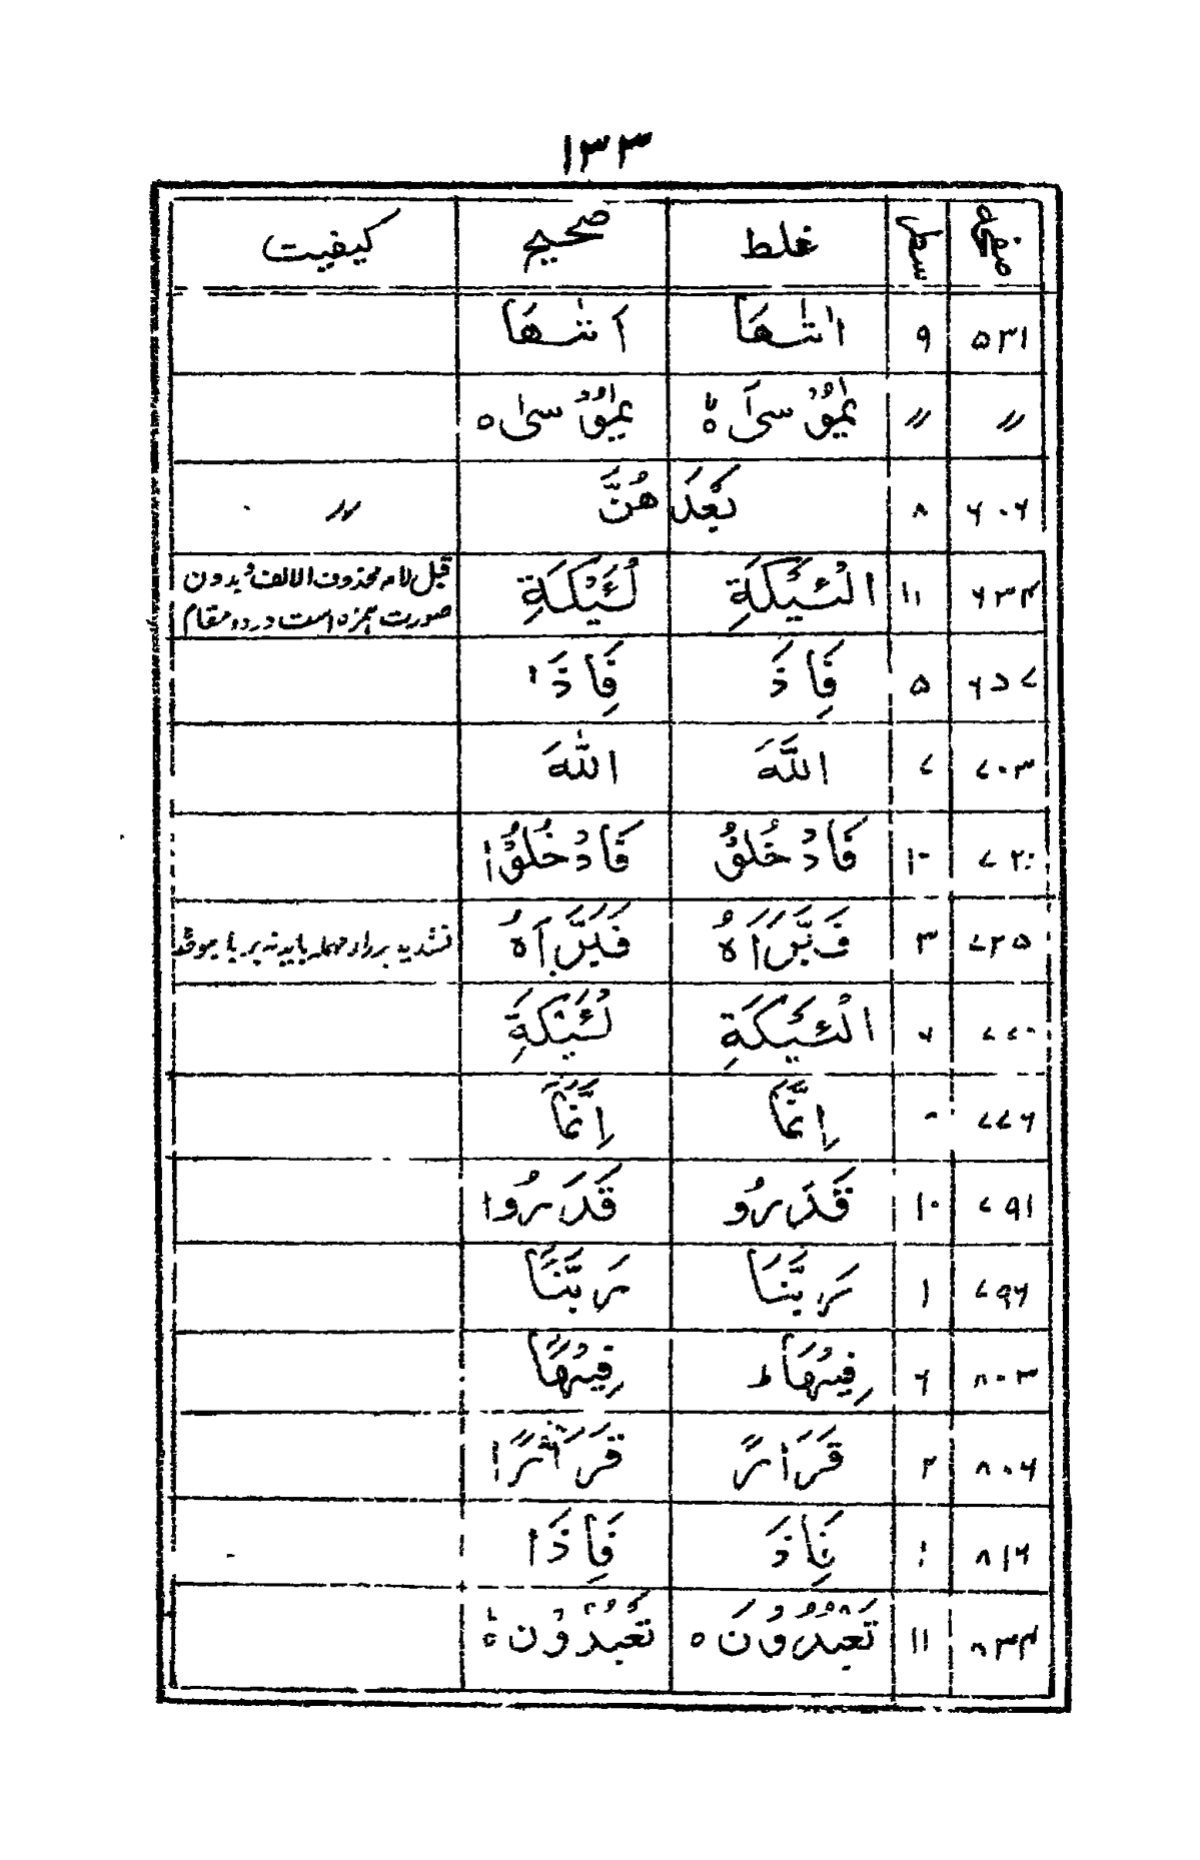 ۱۳۳
صفحہ سطر غلط صحیح کیفیت
۵۳۱ ۹ اٰتٰىهَا اٰتٰىهَا
〃 〃 عٰمِيُوْسىٰٓ ەؕ عٰمِيُوْسىٰ ە
۶۰۶ ۸ بَعْدَ هُنَّ 〃
۶۳۴ ۱۱ الْـئَيْكَةِ لْـَٔيْكَةِ قبل لام محذوف الالف و بدون
صورت ہمزہ است در دو مقام
۶۵۷ ۵ فَاِذَ فَاِذَا
۷۰۳ ۷ اللَّهَ اللّٰهَ
۷۲۰ ۱۰ فَادْخُلُوْ فَادْخُلُوْا
۷۲۵ ۳ فَبَّرَاَهُ فَبَرَّاَهُ تشدید بر راء مہملہ باید نہ بر باء موحدہ
۷۷۰ الْـئَيْكَةِ لْـَٔيْكَةِ
۷۷۶ اِنَّمَا اِنَّمَآ
۷۹۱ ۱۰ قَدَرُو قَدَرُوا
۷۹۶ ۱ رَبَّنَا رَبَّنَآ
۸۰۳ ۶ فِيْهَا ط فِيْهَآ
۸۰۶ ۲ قَرَارً قَرَارًا
۸۱۶ فَاِذَ فَاِذَا
۸۳۴ ۱۱ تَعْبُدُوْنَ ە تَعْبُدُوْنِ ەؕ